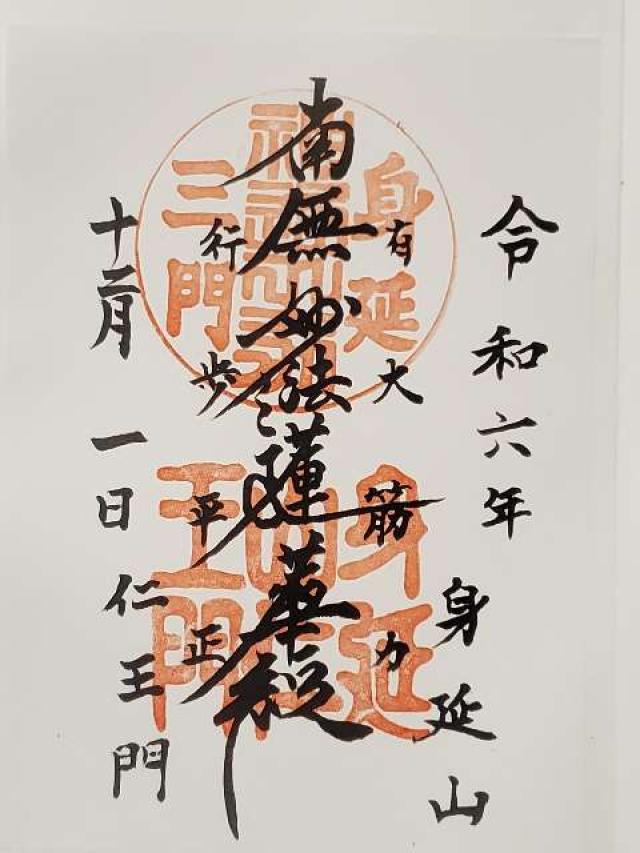 令和六年
身延山
有大筋力
南無妙法蓮華経
行歩平正
十二月一日
仁王門
身延
三門
身延
山仁
王門